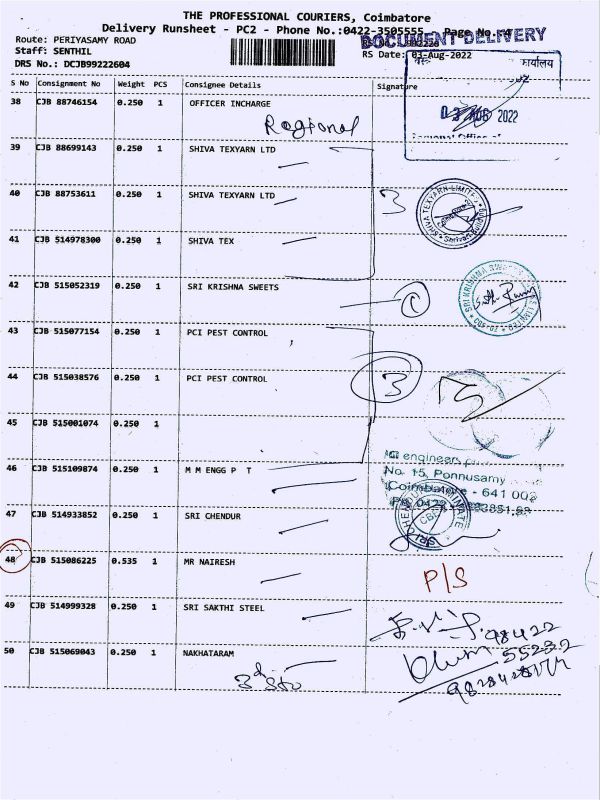 THE PROFESSIONAL COURIERS, Coimbatore
Delivery Runsheet - PC2 - Phone No.:0422-3505555 Page No. 4
DOCUMENT DELIVERY
Route: PERIYASAMY ROAD
Staff: SENTHIL
RS Date: 03-Aug-2022
DRS No.: DCJB99222604
कार्यालय
S No Consignment No Weight PCS Consignee Details Signature
38 CJB 88746154 0.250 1 OFFICER INCHARGE
Regional
03 AUG 2022
39 CJB 88699143 0.250 1 SHIVA TEXYARN LTD
40 CJB 88753611 0.250 1 SHIVA TEXYARN LTD
3
SHIVA TEXYARN LIMITED
41 CJB 514978300 0.250 1 SHIVA TEX
42 CJB 515052319 0.250 1 SRI KRISHNA SWEETS
1
SRI KRISHNA
43 CJB 515077154 0.250 1 PCI PEST CONTROL
44 CJB 515038576 0.250 1 PCI PEST CONTROL
3
45 CJB 515001074 0.250 1
engineers
46 CJB 515109874 0.250 1 M M ENGG P T
No. 15, Ponnusamy
Coimbatore - 641 002
47 CJB 514933852 0.250 1 SRI CHENDUR
48 CJB 515086225 0.535 1 MR NAIRESH
P/S
49 CJB 514999328 0.250 1 SRI SAKTHI STEEL
98422
55232
50 CJB 515069043 0.250 1 NAKHATARAM